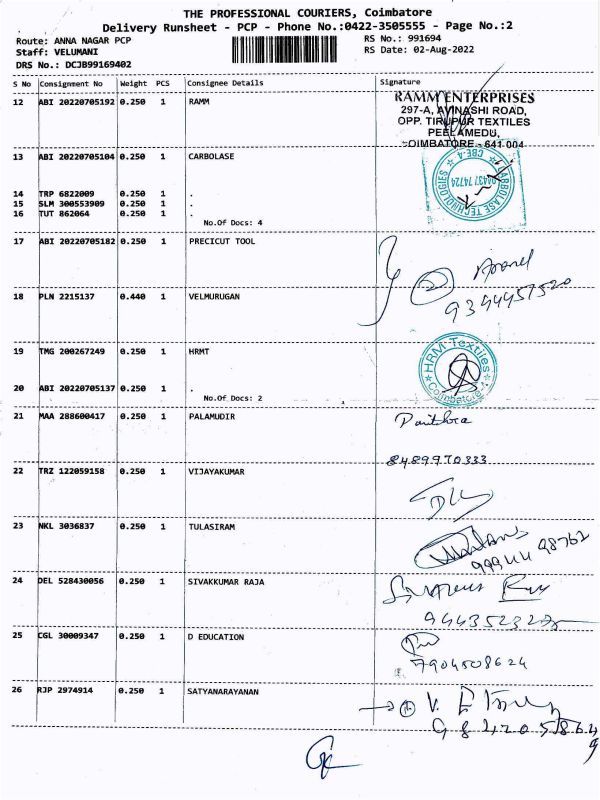 THE PROFESSIONAL COURIERS, Coimbatore
Delivery Runsheet - PCP - Phone No.:0422-3505555 - Page No.:2
Route: ANNA NAGAR PCP
RS No.: 991694
Staff: VELUMANI
RS Date: 02-Aug-2022
DRS No.: DCJB99169402
S No Consignment No Weight PCS Consignee Details Signature
12 ABI 20220705192 0.250 1 RAMM
RAMM ENTERPRISES
297-A, AVINASHI ROAD,
OPP. TIRUPUR TEXTILES
PEELAMEDU,
COIMBATORE - 641 004
13 ABI 20220705104 0.250 1 CARBOLASE
CARBOLASE TECHNOLOGIES
CBE-4
14 TRP 6822009 0.250 1 .
15 SLM 300553909 0.250 1 .
16 TUT 862064 0.250 1 .
No.Of Docs: 4
17 ABI 20220705182 0.250 1 PRECICUT TOOL
2
9394457520
18 PLN 2215137 0.440 1 VELMURUGAN
19 TMG 200267249 0.250 1 HRMT
HRM Textiles
Coimbatore
20 ABI 20220705137 0.250 1 .
No.Of Docs: 2
21 MAA 288600417 0.250 1 PALAMUDIR
8489970333
22 TRZ 122059158 0.250 1 VIJAYAKUMAR
23 NKL 3036837 0.250 1 TULASIRAM
99944 98762
24 DEL 528430056 0.250 1 SIVAKKUMAR RAJA
25 CGL 30009347 0.250 1 D EDUCATION
7904508624
26 RJP 2974914 0.250 1 SATYANARAYANAN